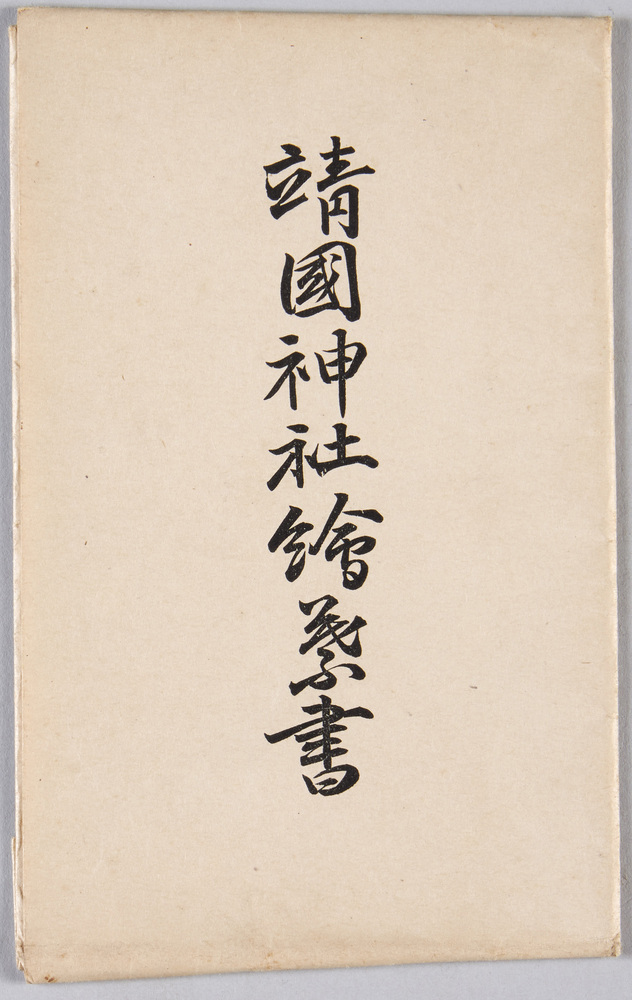 靖國神社繪葉書